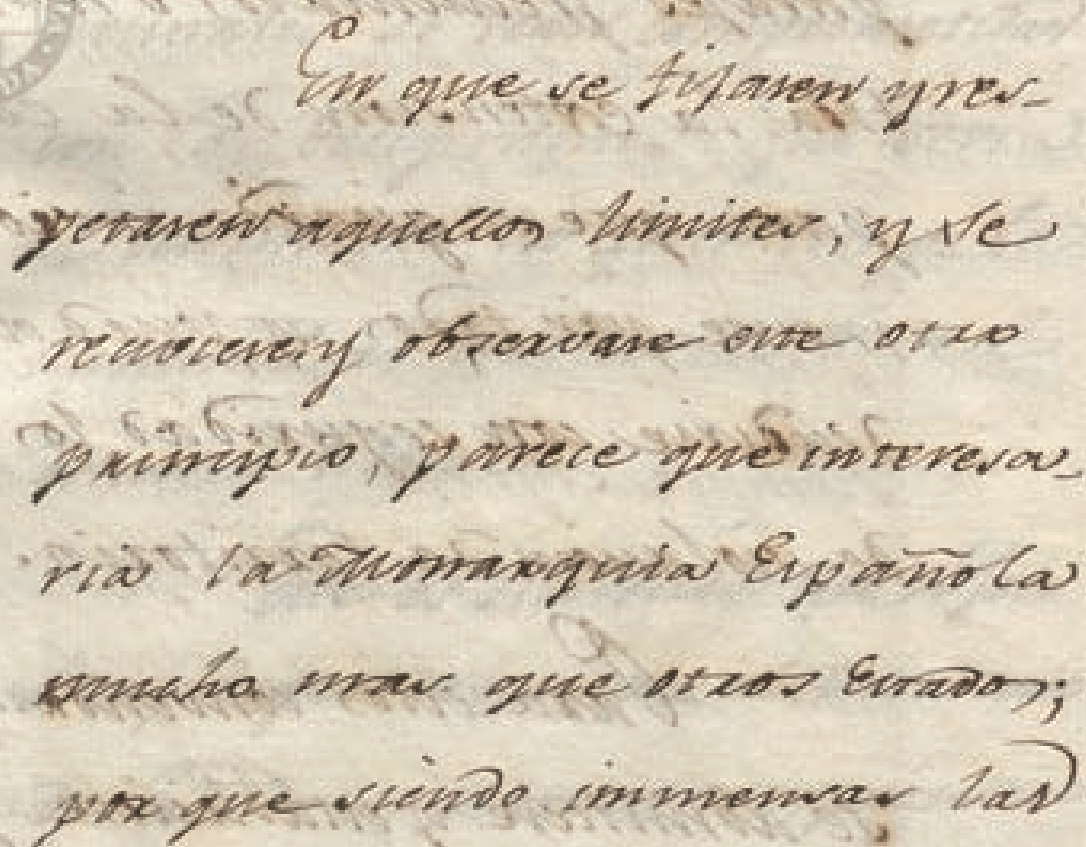 En que se fijaren y res-
petaren aquellos limites, y se
reciviere, y observare este otro
principio, parece que interesa-
ria la Monarquia Española
mucho mas que otros Estados;
por que siendo immensas las